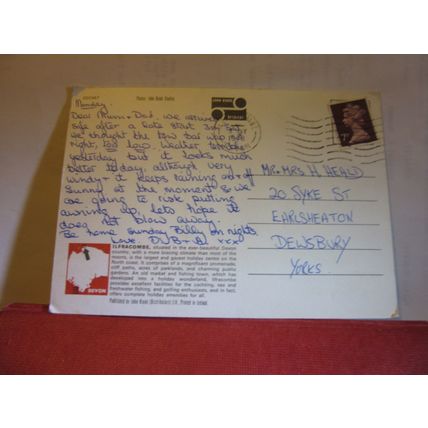 Photo: John Hinde Studios
JOHN HINDE
ORIGINAL
Monday
Dear Mum + Dad, we arrived
safe after a late start 3
we thought the tow bar who
night, too low. Weather terrible
yesterday but it looks much
better today, although very
windy + it keeps raining on + off
Sunny at the moment so we
are going to risk putting
awning up, Lets hope it
does not blow away.
Be home Sunday Billy on nights.
Love xxx
MR. MRS H. HEALD
20 SYKE ST
EARLSHEATON
DEWSBURY
YORKS
DEVON
ILFRACOMBE, situated in the ever-beautiful Devon
country, with a more bracing climate than most of the
resorts, is the largest and gayest holiday centre on the
North coast. It comprises of a magnificent promenade,
cliff paths, acres of parklands, and charming public
gardens. An old market and fishing town, which has
developed into a holiday wonderland. Ilfracombe
provides excellent facilities for the yachting, sea and
freshwater fishing, and golfing enthusiasts, and in fact,
offers complete holiday amenities for all.
Published by John Hinde (Distributors) Ltd., Printed in Ireland